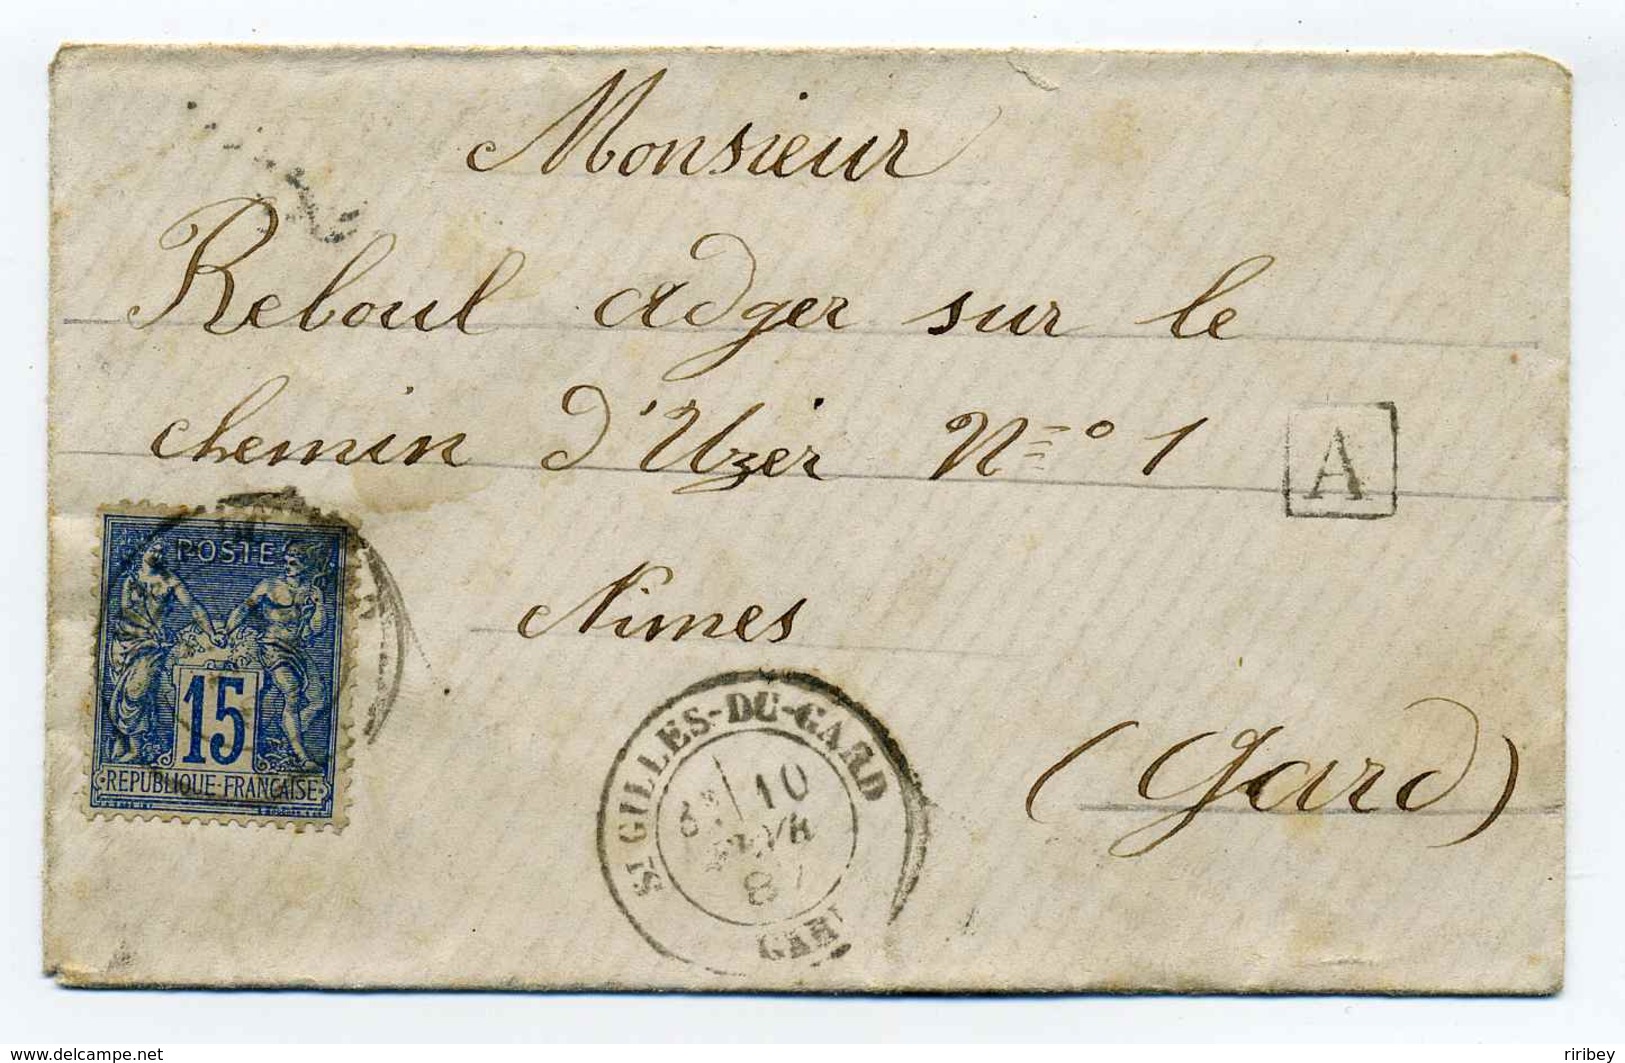 Monsieur
Reboul Adger sur le
chemin d'Uzèr N=º 1
A
Nimes
(Gard)
POSTE
15
REPUBLIQUE FRANCAISE
ST-GILLES-DU-GARD
10
8
GARD
delcampe.net
riribey